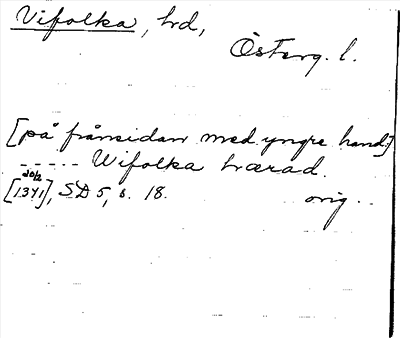 Vifolka, hrd,
Österg. l.
[på frånsidan med yngre hand]
----- Wifolka hærad.
20/2
[1341], SD 5, s. 18. orig..